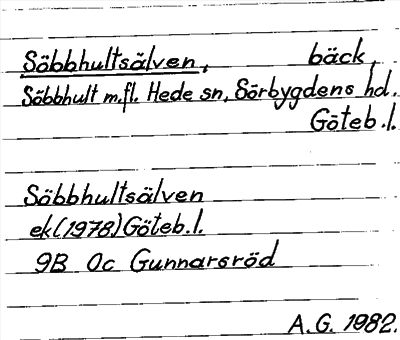 Söbbhultsälven, bäck,
Söbbhult m.fl. Hede sn, Sörbygdens hd.
Göteb.l.
Söbbhultsälven
ek(1978)Göteb.l.
9B 0c Gunnarsröd
A.G. 1982.